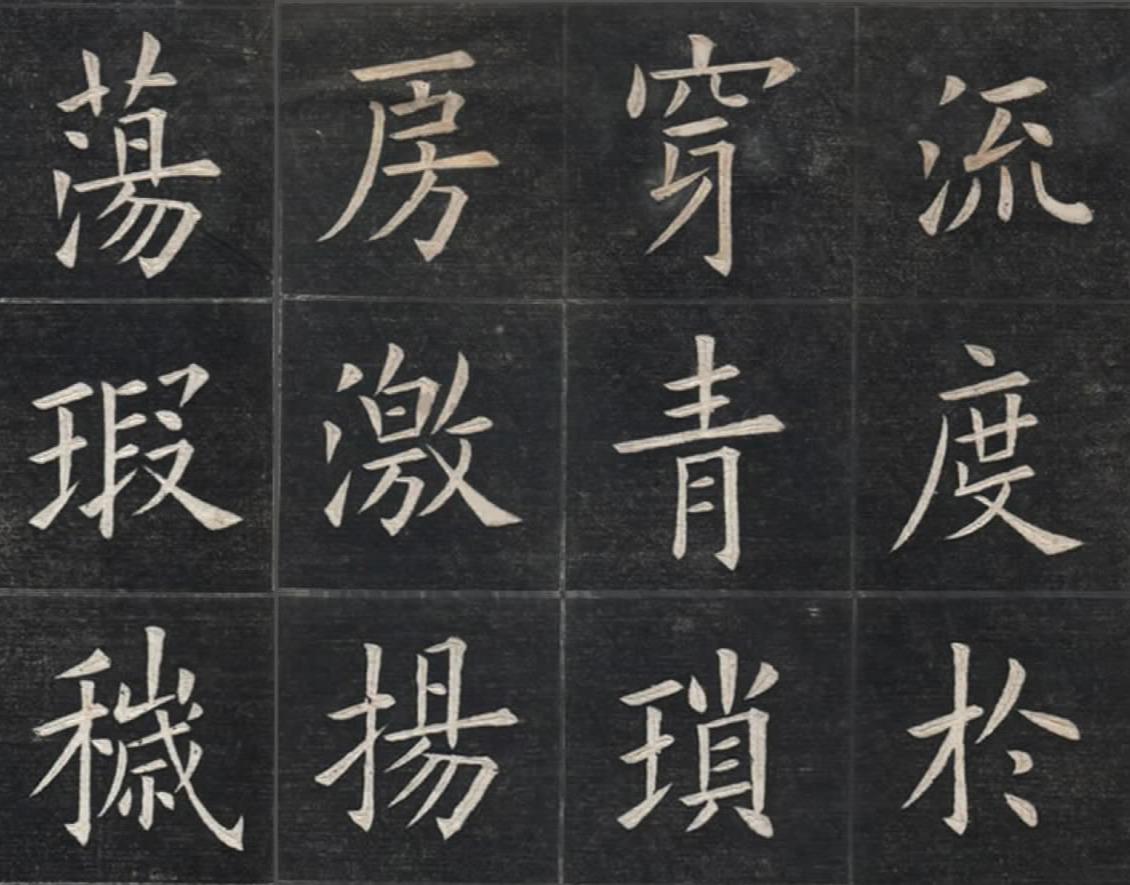 流度於
穿青瑣
房激揚
蕩瑕穢